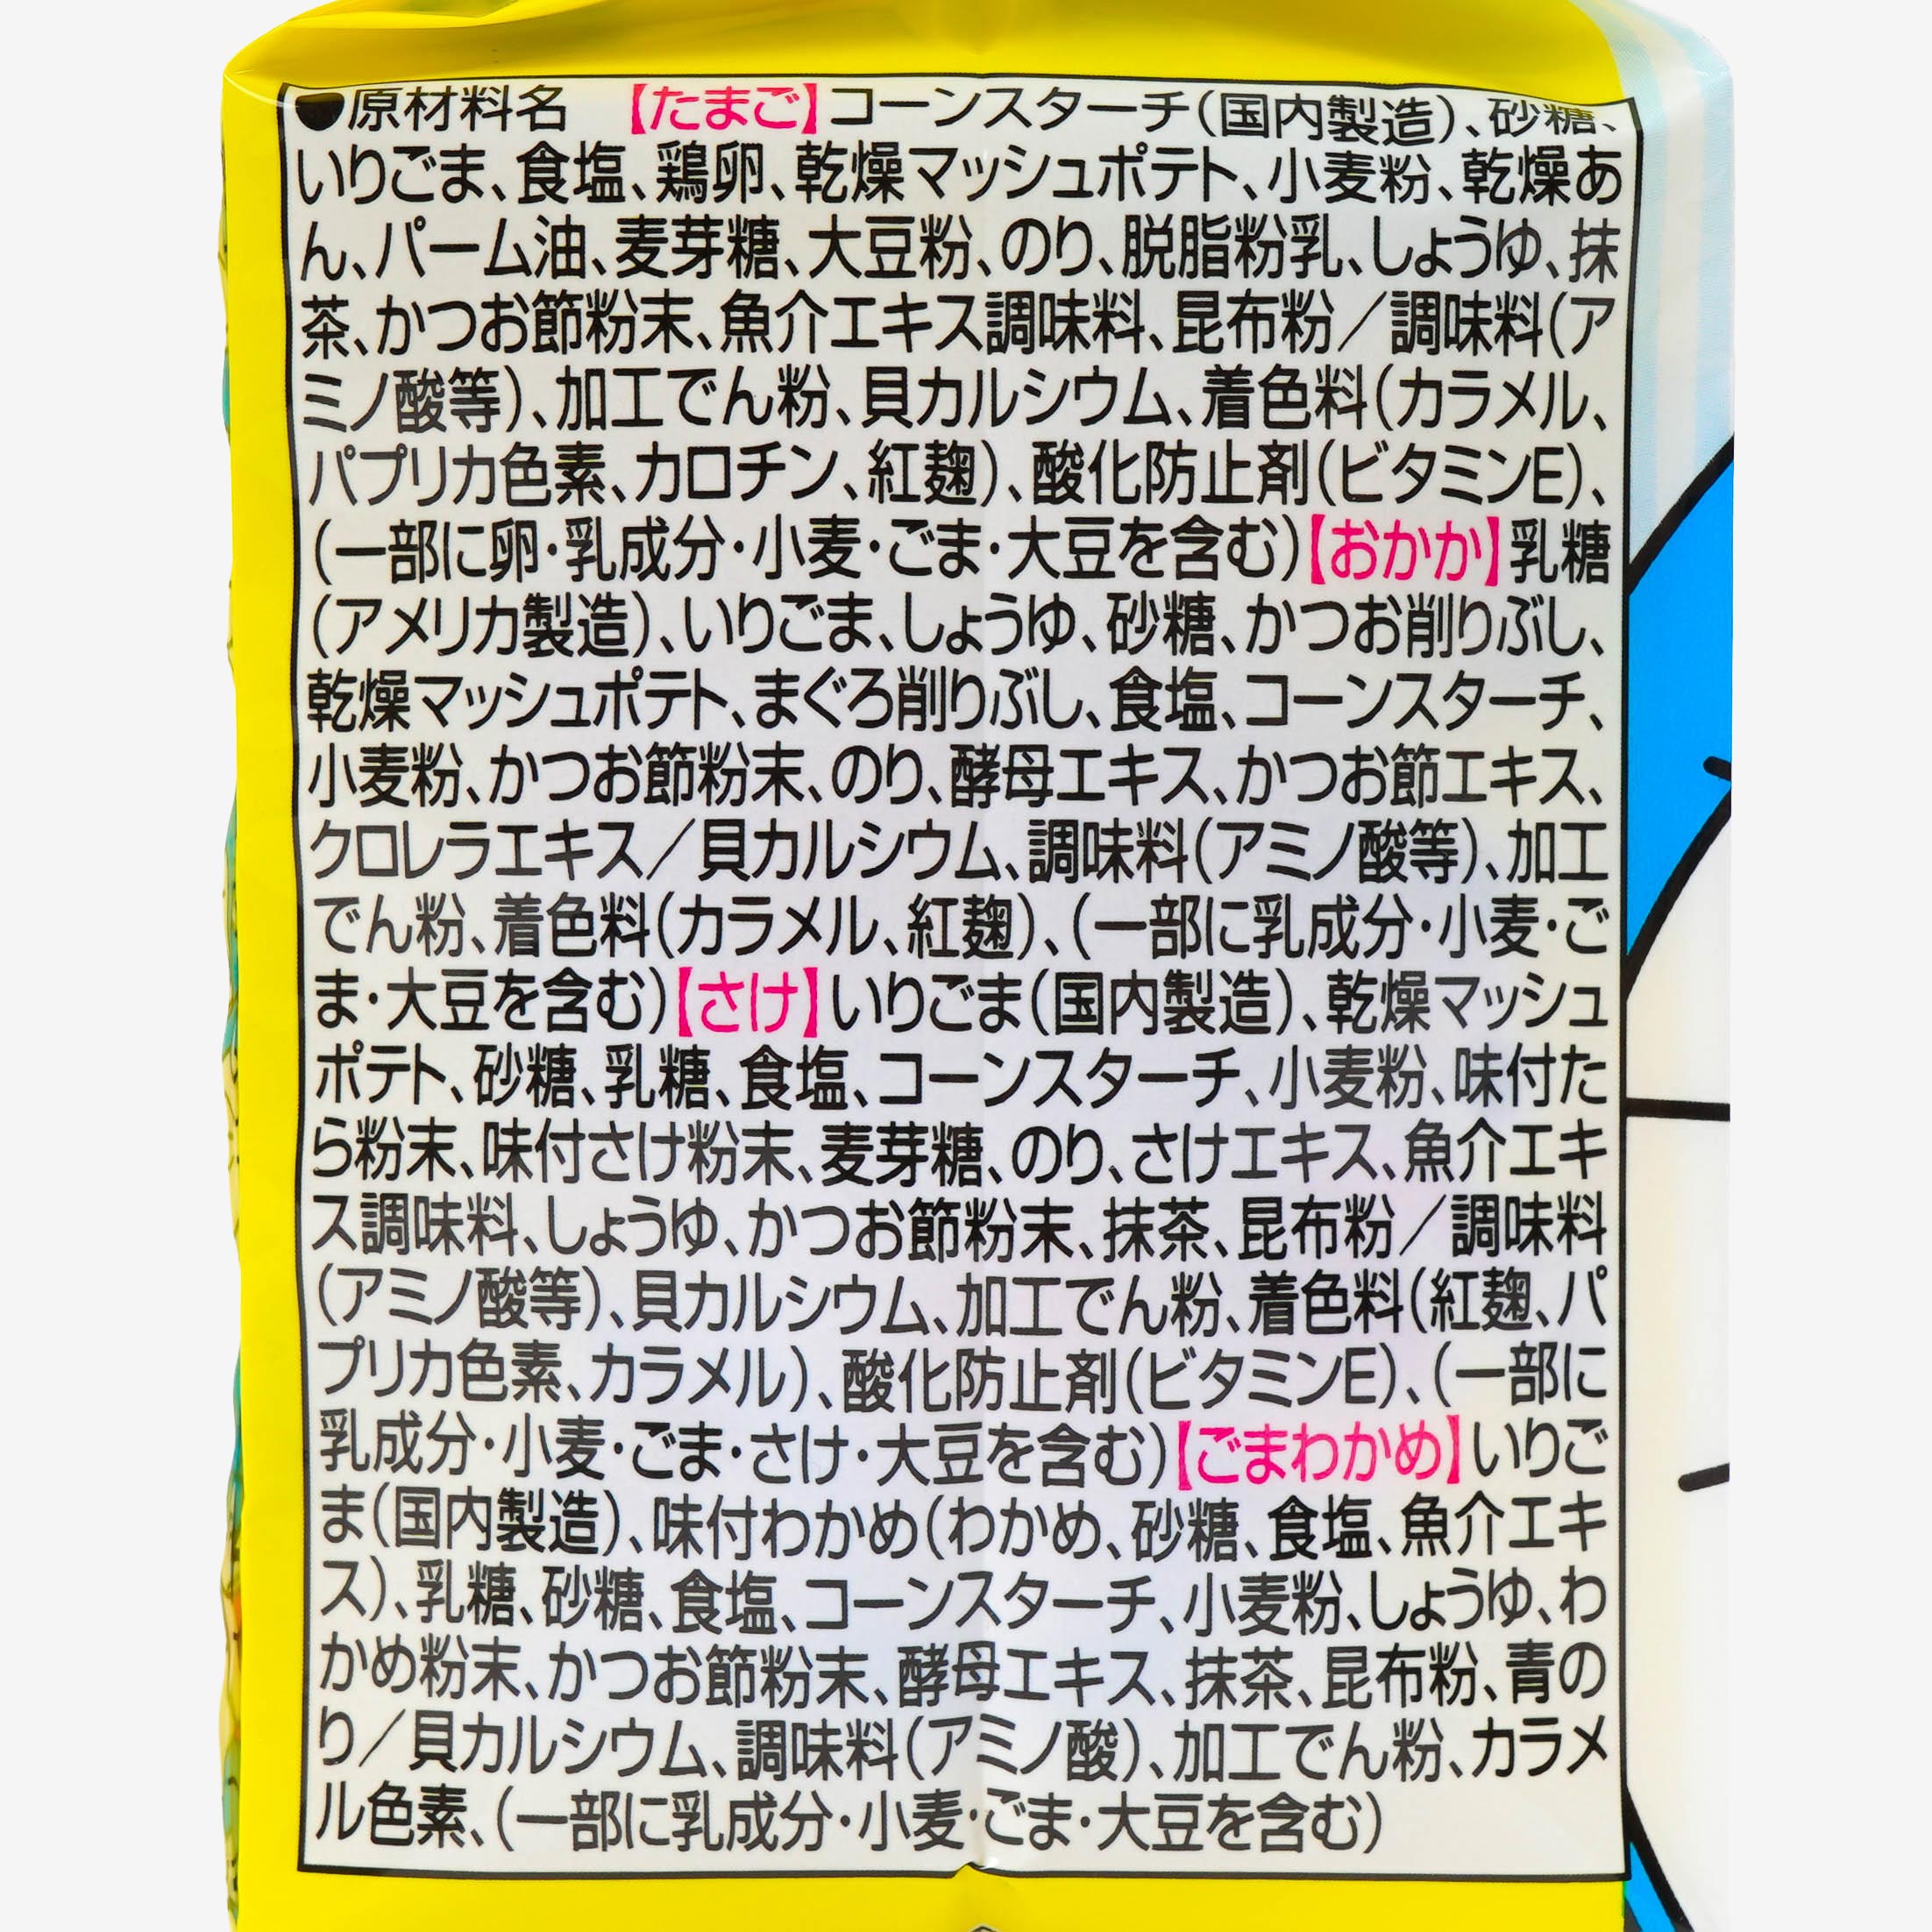 ●原材料名 【たまご】コーンスターチ(国内製造)、砂糖、
いりごま、食塩、鶏卵、乾燥マッシュポテト、小麦粉、乾燥あ
ん、パーム油、麦芽糖、大豆粉、のり、脱脂粉乳、しょうゆ、抹
茶、かつお節粉末、魚介エキス調味料、昆布粉／調味料(ア
ミノ酸等)、加工でん粉、貝カルシウム、着色料(カラメル、
パプリカ色素、カロチン、紅麹)、酸化防止剤(ビタミンE)、
(一部に卵・乳成分・小麦・ごま・大豆を含む)【おかか】乳糖
(アメリカ製造)、いりごま、しょうゆ、砂糖、かつお削りぶし、
乾燥マッシュポテト、まぐろ削りぶし、食塩、コーンスターチ、
小麦粉、かつお節粉末、のり、酵母エキス、かつお節エキス、
クロレラエキス／貝カルシウム、調味料(アミノ酸等)、加工
でん粉、着色料(カラメル、紅麹)、(一部に乳成分・小麦・ご
ま・大豆を含む)【さけ】いりごま(国内製造)、乾燥マッシュ
ポテト、砂糖、乳糖、食塩、コーンスターチ、小麦粉、味付た
ら粉末、味付さけ粉末、麦芽糖、のり、さけエキス、魚介エキ
ス調味料、しょうゆ、かつお節粉末、抹茶、昆布粉／調味料
(アミノ酸等)、貝カルシウム、加工でん粉、着色料(紅麹、パ
プリカ色素、カラメル)、酸化防止剤(ビタミンE)、(一部に
乳成分・小麦・ごま・さけ・大豆を含む)【ごまわかめ】いりご
ま(国内製造)、味付わかめ(わかめ、砂糖、食塩、魚介エキ
ス)、乳糖、砂糖、食塩、コーンスターチ、小麦粉、しょうゆ、わ
かめ粉末、かつお節粉末、酵母エキス、抹茶、昆布粉、青の
り／貝カルシウム、調味料(アミノ酸)、加工でん粉、カラメ
ル色素、(一部に乳成分・小麦・ごま・大豆を含む)